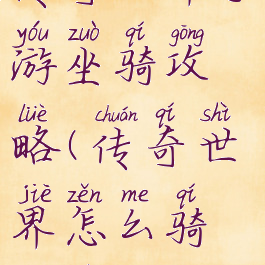 yóu zuò qí gōng
游坐骑攻
lüè chuán qí shì
略(传奇世
jiè zěn me qí
界怎么骑